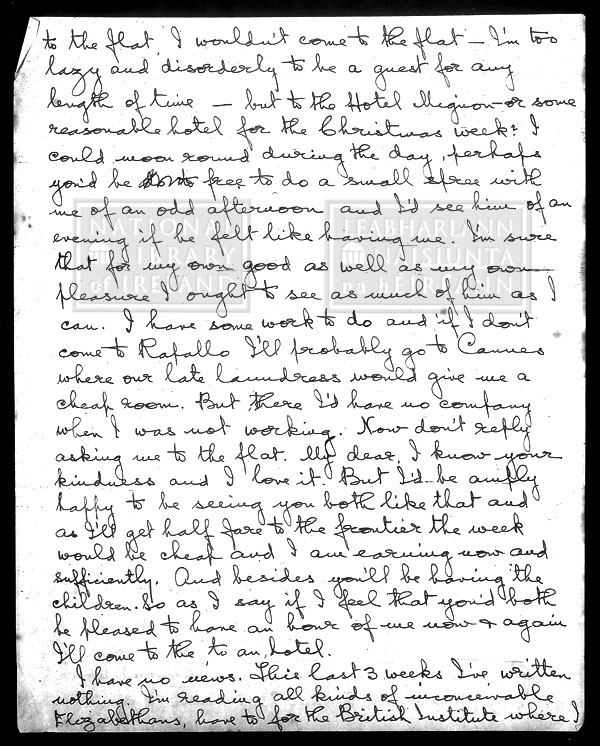 to the flat, I wouldn't come to the flat — I'm too
lazy and disorderly to be a guest for any
length of time — but to the Hotel Mignon or some
reasonable hotel for the Christmas week? I
could moon round during the day, perhaps
you'd be free to do a small spree with
me of an odd afternoon and I'd see him of an
evening if he felt like having me. I'm sure
that for my own good as well as my own
pleasure I ought to see as much of him as I
can. I have some work to do and if I don't
come to Rapallo I'll probably go to Cannes
where our late laundress would give me a
cheap room. But there I'd have no company
when I was not working. Now don't reply
asking me to the flat. My dear, I know your
kindness and I love it. But I'd be amply
happy to be seeing you both like that and
as I'll get half fare to the frontier the week
would be cheap and I am earning now and
sufficiently. And besides you'll be having the
children. So as I say if I feel that you'd both
be pleased to have an hour of me now & again
I'll come to the to an hotel.
I have no news. This last 3 weeks I've written
nothing. I'm reading all kinds of inconceivable
Elizabethans, have to for the British Institute where I
NATIONAL LIBRARY of IRELAND
LEABHARLANN NÁISIÚNTA na hÉIREANN